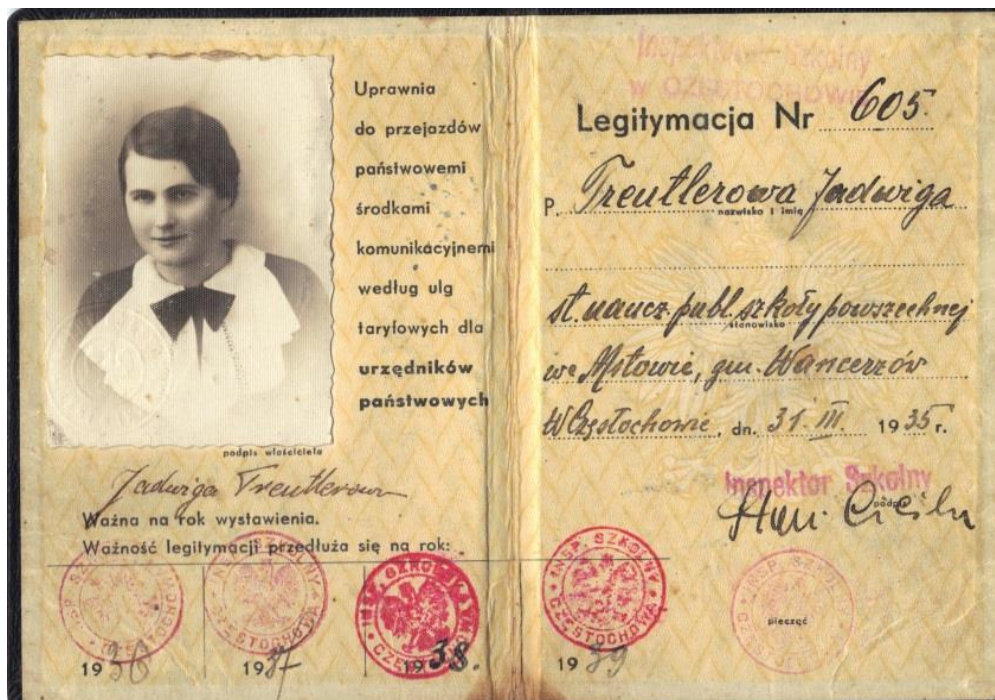 Uprawnia
do przejazdów
państwowemi
środkami
komunikacyjnemi
według ulg
taryfowych dla
urzędników
państwowych
podpis właściciela
Jadwiga Treutlerowa
Ważna na rok wystawienia.
Ważność legitymacji przedłuża się na rok:
INSP. SZKOLNY
CZĘSTOCHOWA
1936
INSP. SZKOLNY
CZĘSTOCHOWA
1937
INSP. SZKOLNY
1938.
Inspektorat Szkolny
w CZĘSTOCHOWIE
Legitymacja Nr 605.
P. Treutlerowa Jadwiga
nazwisko i imię
st. naucz. publ. szkoły powszechnej
stanowisko
we Mstowie, gm. Wancerzów
W Częstochowie, dn. 31. III. 1935 r.
Inspektor Szkolny
podpis
INSP. SZKOLNY
CZĘSTOCHOWA
1939
INSP. SZKOLNY
pieczęć